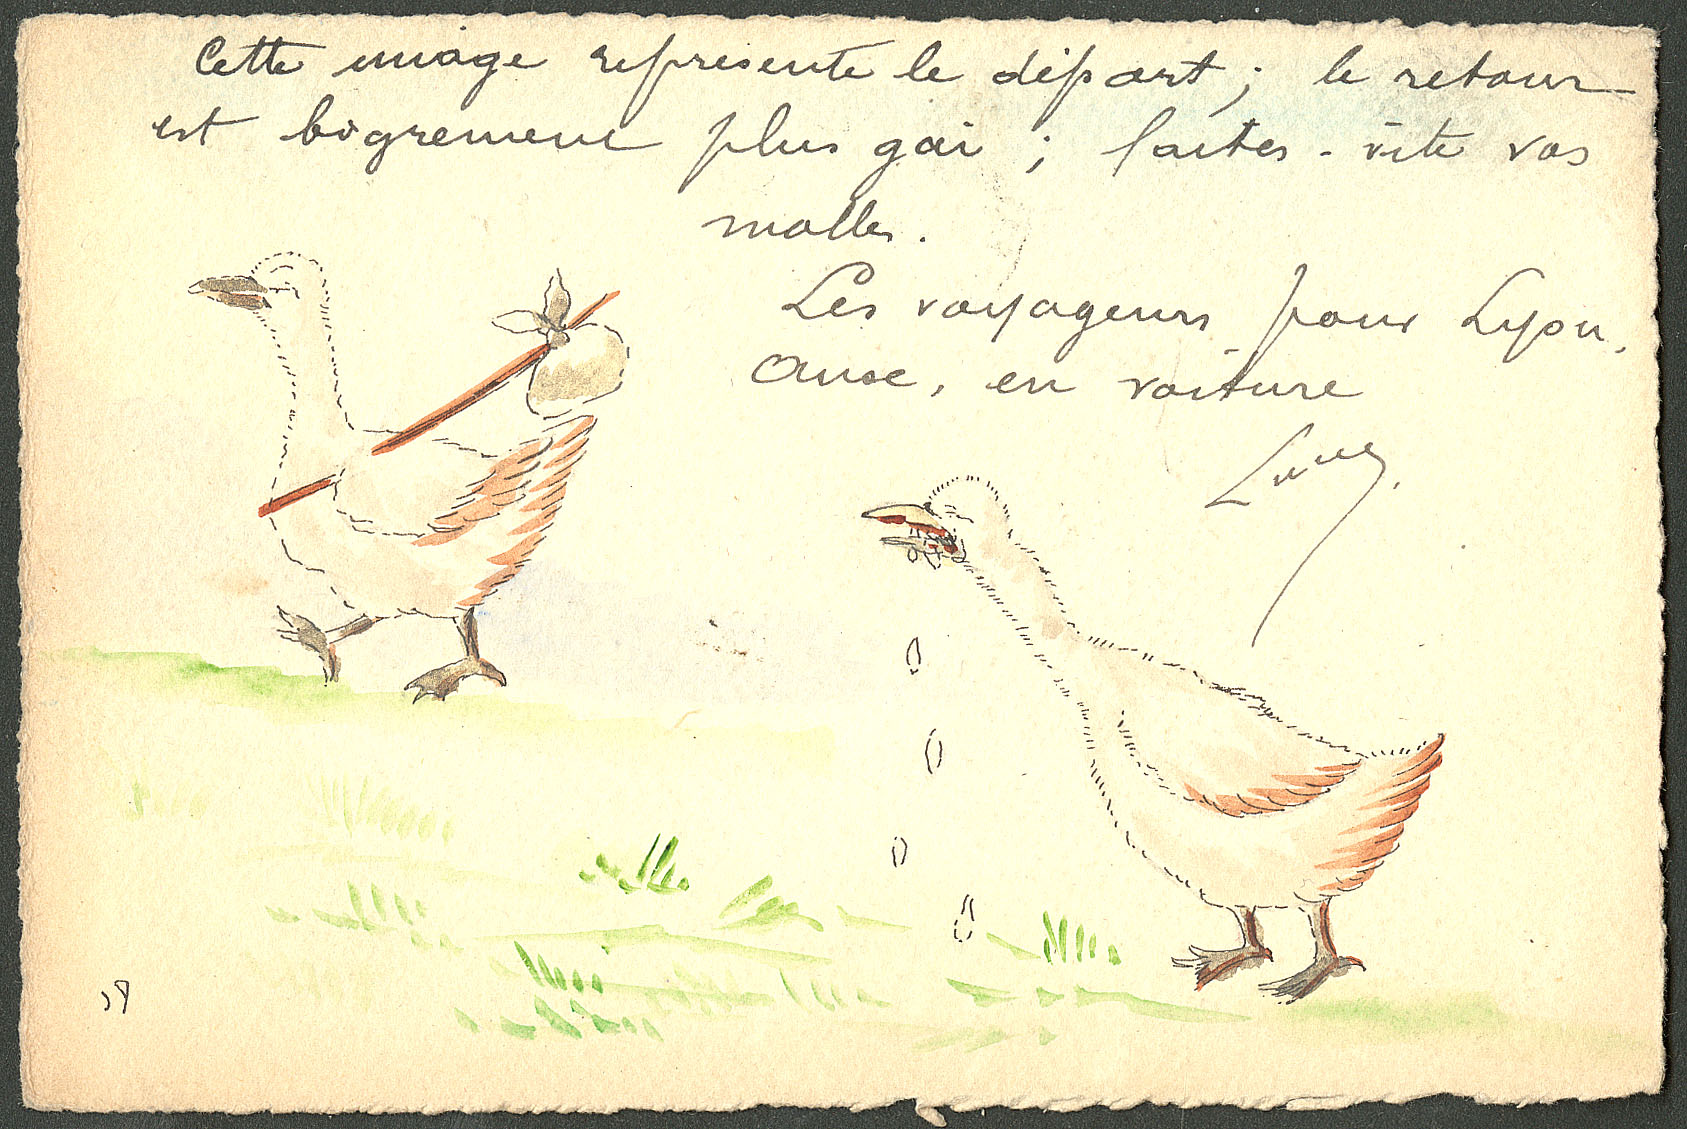 Cette image représente le départ ; le retour
est bogrement plus gai ; faites-vite vos
malles.
Les voyageurs pour Lyon,
Anse, en voiture